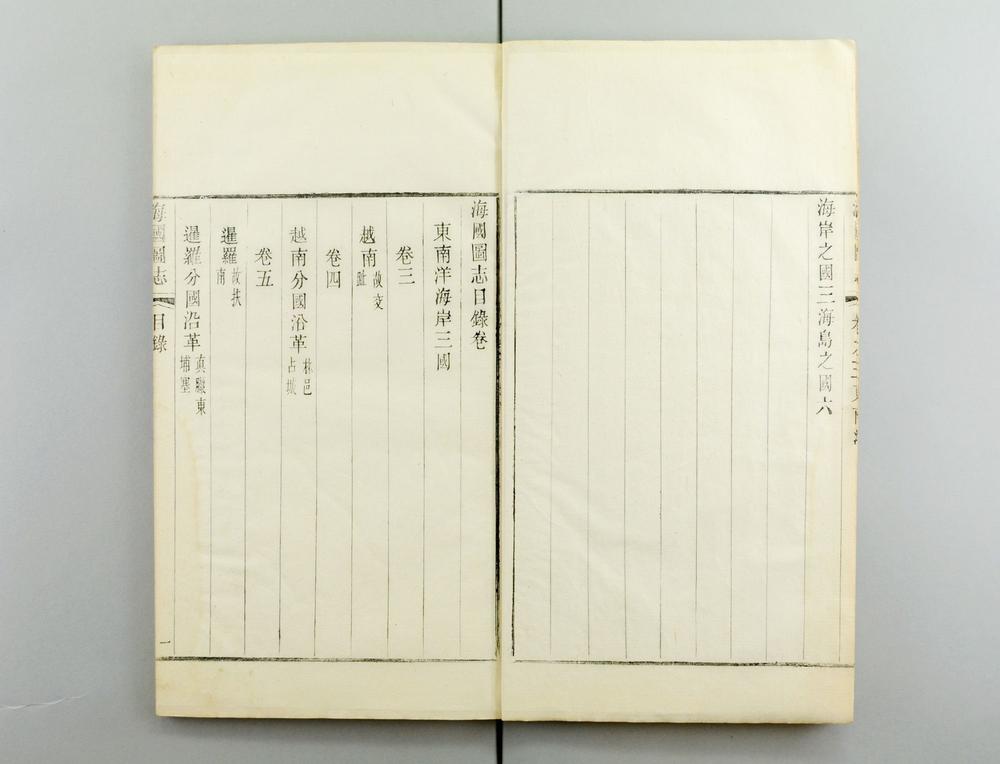 海岸之國三海島之國六
海國圖志目錄卷
東南洋海岸三國
卷三
越南 故交趾
卷四
越南分國沿革 林邑占城
卷五
暹羅 故扶南
暹羅分國沿革 真臘東埔塞
海國圖志 目錄 一